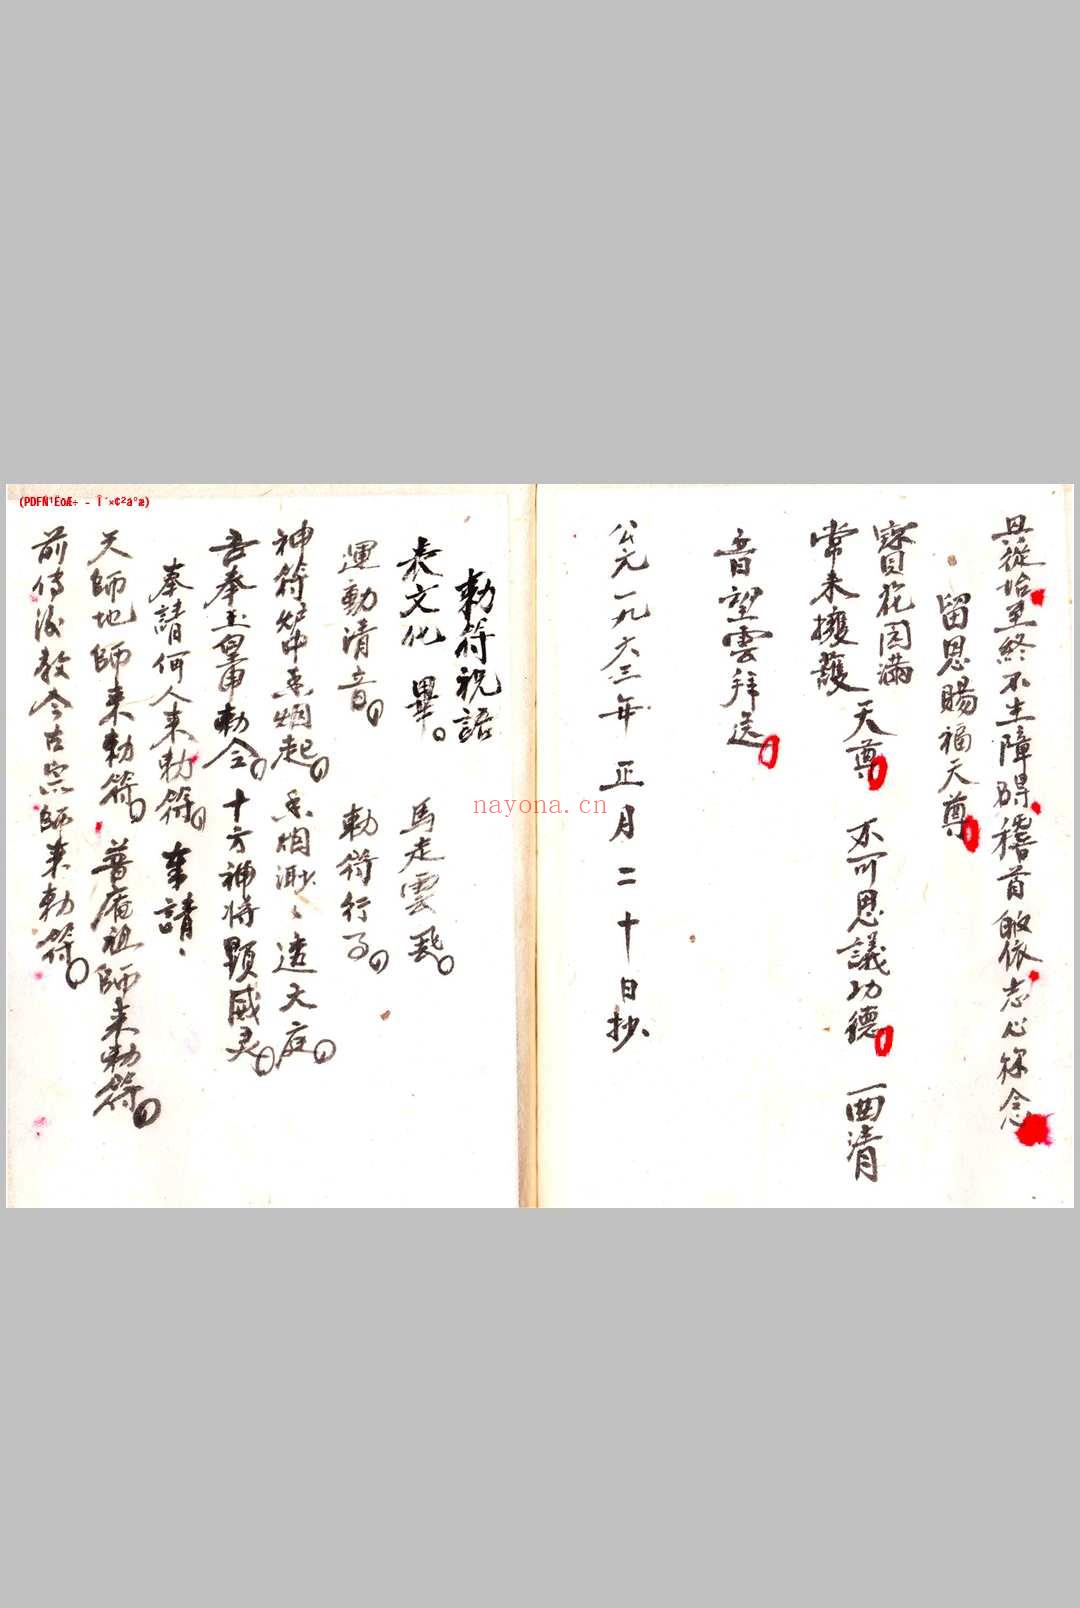 具從始至終不生障碍稽首皈依志心称念
留恩賜福天尊
寳目花园滿
常来擁護 天尊 不可思議功德 西清
音望雲拜送
公元一九六三年 正月二十日抄
勅符祝語
表文化 畢 馬走雲飛
運動清音 勅符行了
神符炉中香烟起 香烟渺、透大庭
吾奉玉皇申勅令 十方神将顕威灵
奉請何人来勅符 奉請、
天師地師来勅符 普庵祖師来勅符
前傳後教今古宗師来勅符
nayona.cn
(PDFÑ¹ËõÆ÷ - Î´×¢²á°æ)